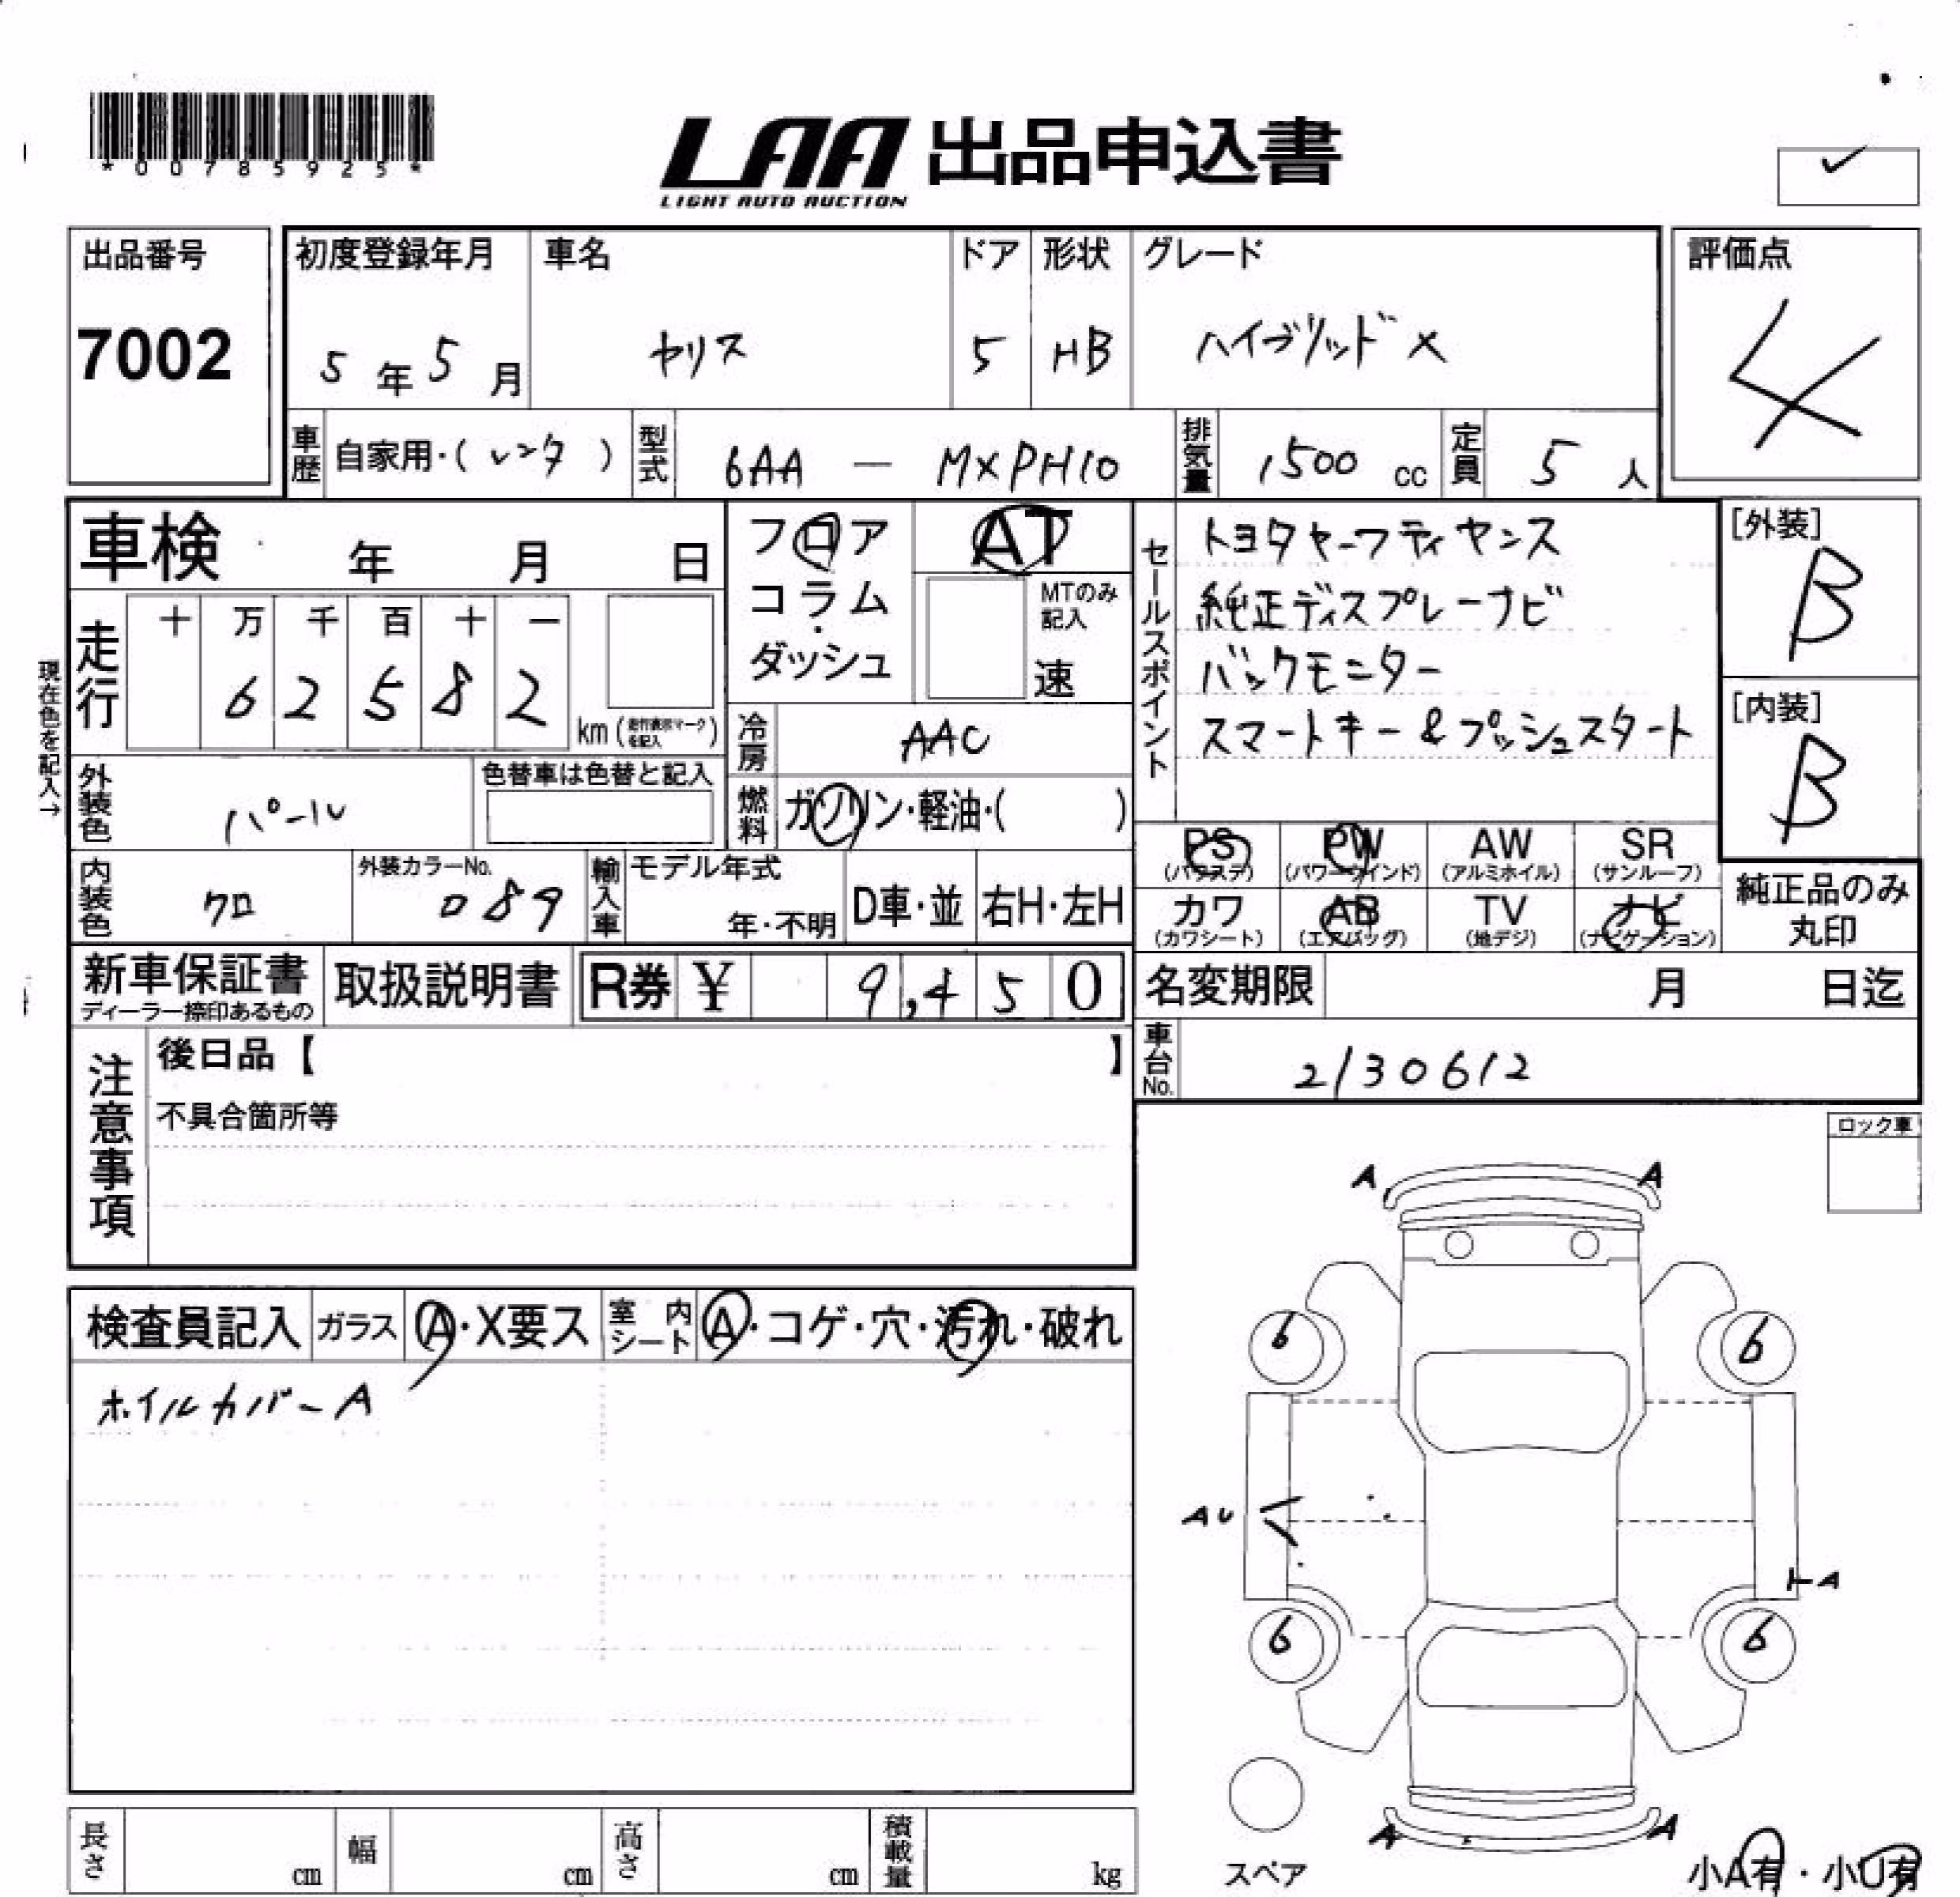 *00785925*
LAA 出品申込書
LIGHT AUTO AUCTION
出品番号
7002
初度登録年月
5年5月
車名
ヤリス
ドア
5
形状
HB
グレード
ハイブリッドX
評価点
4
車歴
自家用・(レンタ)
型式
6AA — MXPH10
排気量
1500 cc
定員
5人
車検 年 月 日
走行
十 万 千 百 十 一
6 2 5 8 2
km (走行表示マークを記入)
現在色を記入→
外装色
パール
色替車は色替と記入
内装色
クロ
外装カラーNo.
089
輸入車
モデル年式
年・不明
D車・並
右H・左H
フロア
コラム
・
ダッシュ
AT
MTのみ
記入
速
冷房
AAC
燃料
ガソリン・軽油・( )
セールスポイント
トヨタセーフティセンス
純正ディスプレーナビ
バックモニター
スマートキー&プッシュスタート
[外装]
B
[内装]
B
PS
(パワステ)
PW
(パワーウインド)
AW
(アルミホイル)
SR
(サンルーフ)
カワ
(カワシート)
AB
(エアバッグ)
TV
(地デジ)
ナビ
(ナビゲーション)
純正品のみ
丸印
新車保証書
ディーラー捺印あるもの
取扱説明書
R券 ¥ 9,450
名変期限 月 日迄
車台No.
2130612
注意事項
後日品【 】
不具合箇所等
ロック車
検査員記入
ガラス
A・X要ス
室内
シート
A・コゲ・穴・汚れ・破れ
ホイルカバーA
A A
6 6
AU
A
6 6
A A
スペア
小A有・小U有
長さ cm
幅 cm
高さ cm
積載量 kg